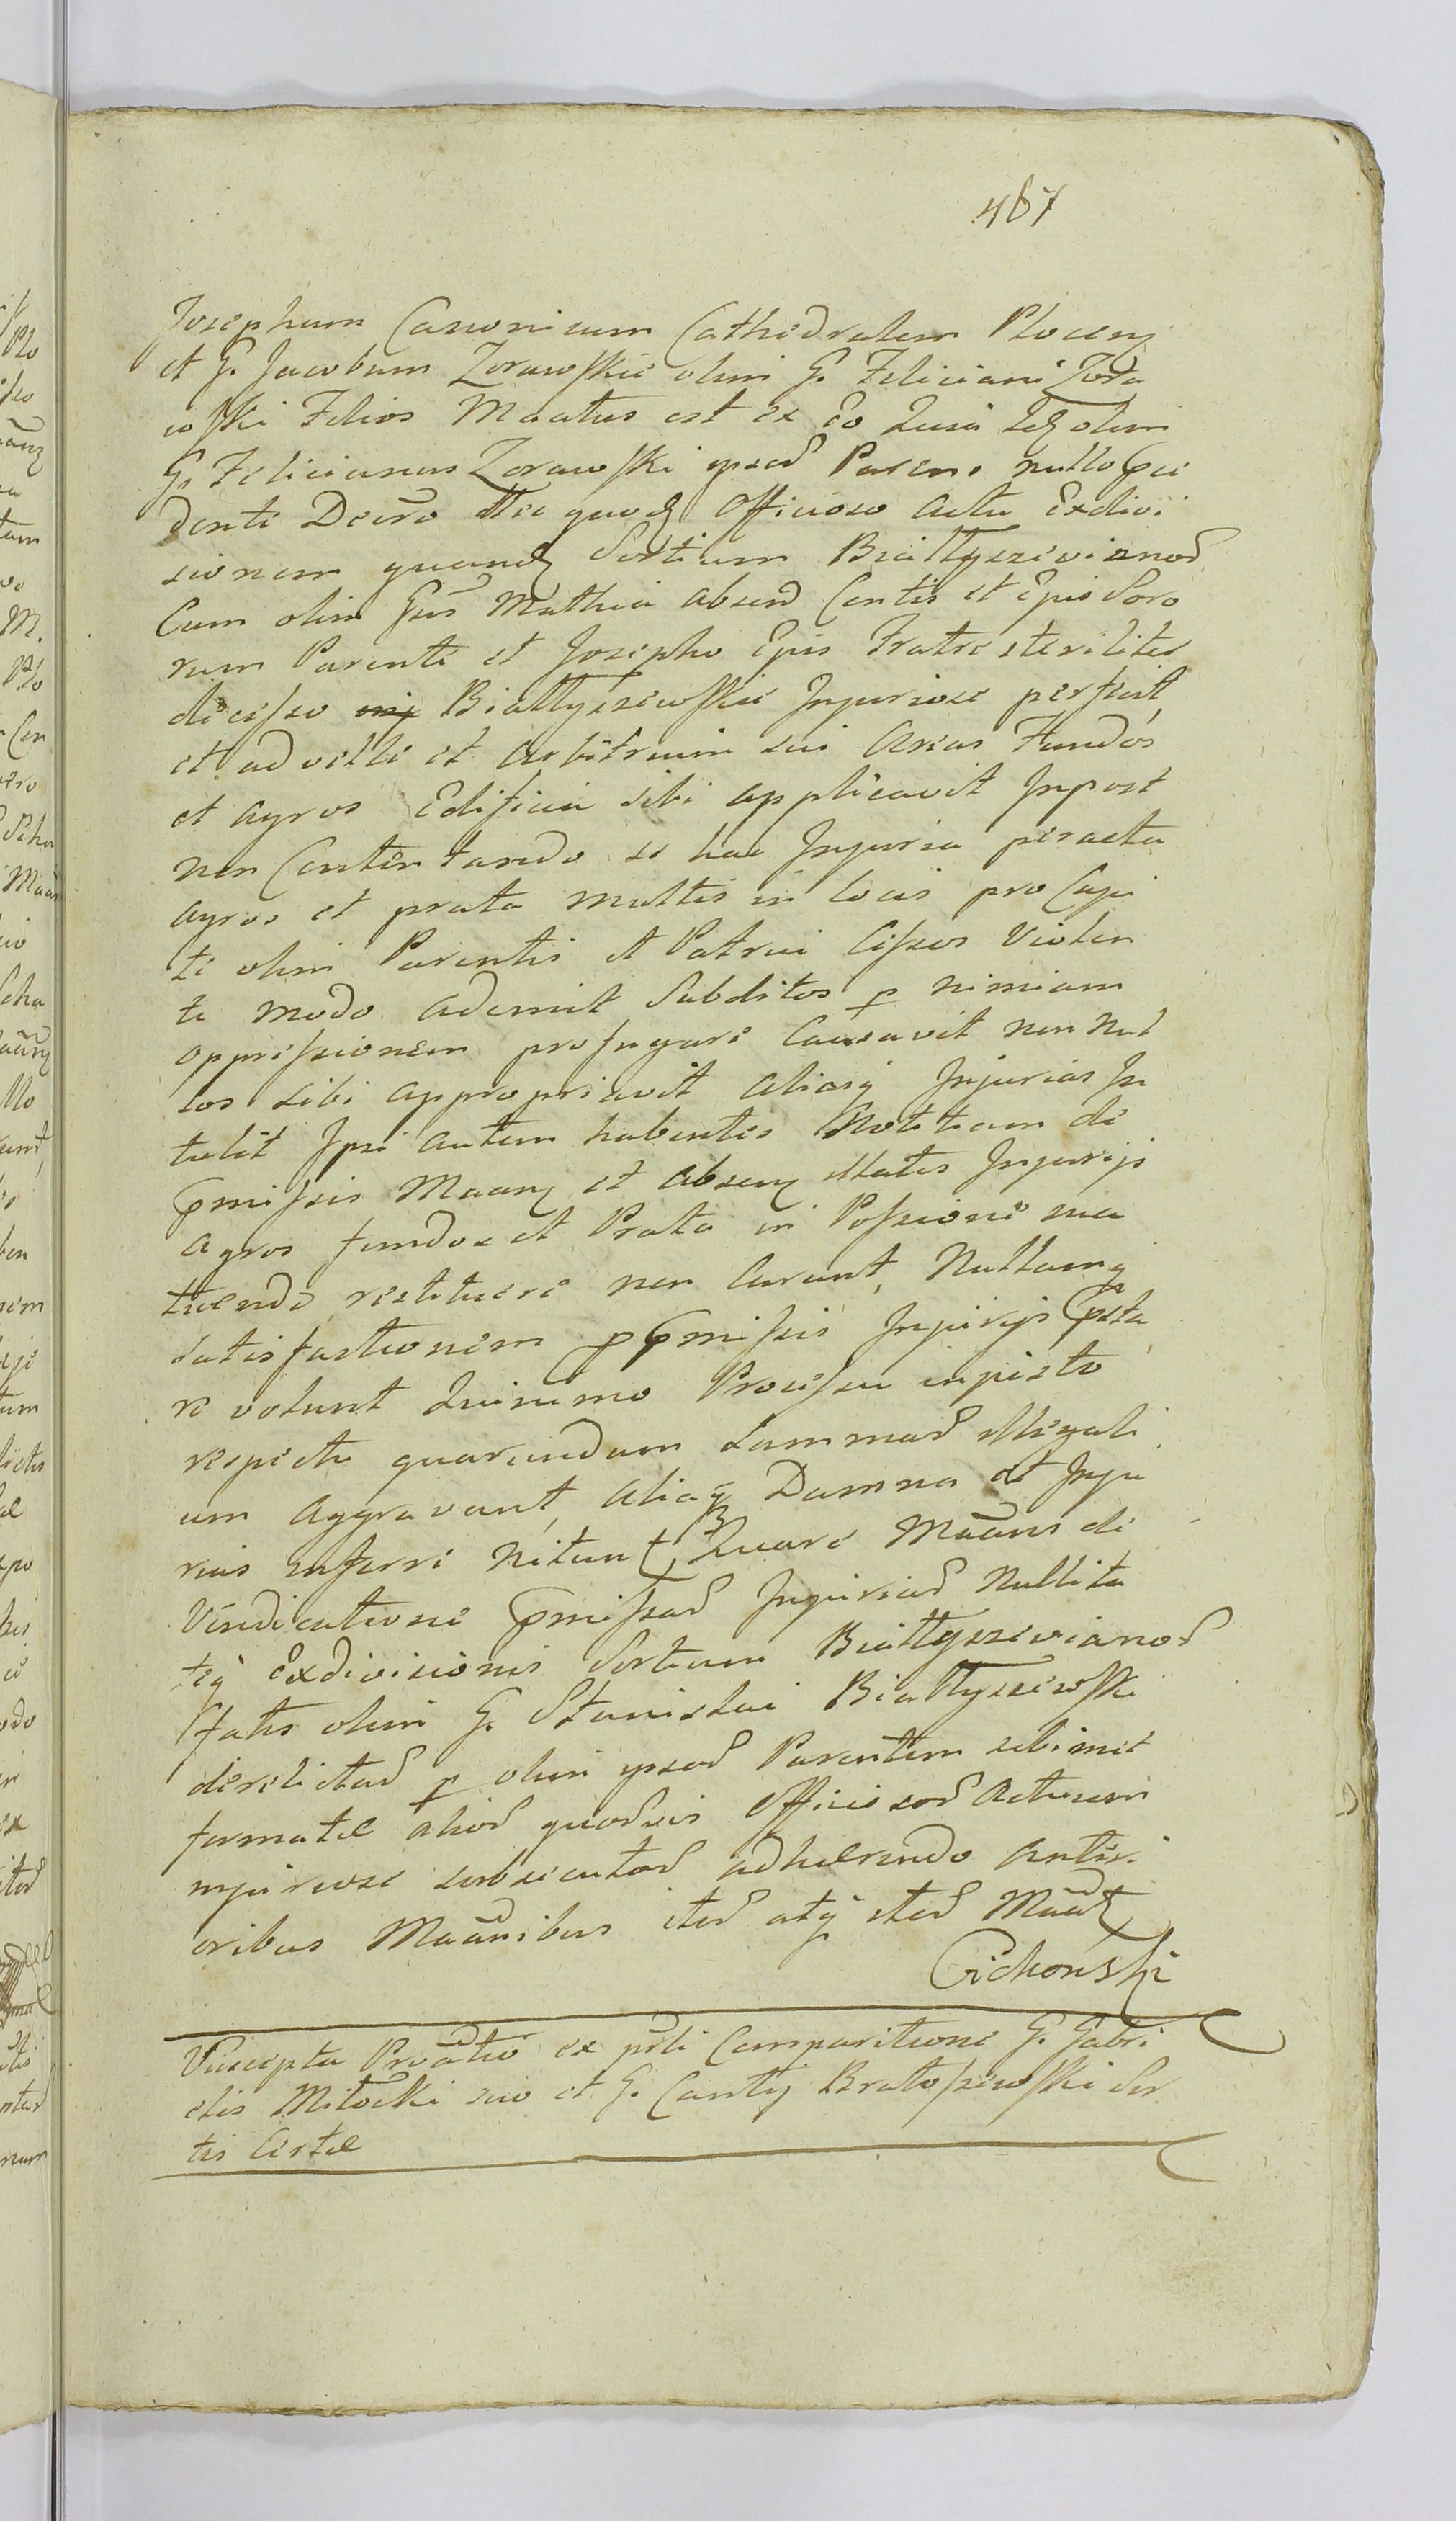 467
Josephum Canonicum Cathedralem Plocens
et G. Jacobum Zorawskie olim G. Feliciani Zora
wski Filios Maatus est ex eo Quia Idq olim
G. Felicianus Zorawski ipsoꝝ Parens nullo præ
dente Decro nec quoq Officioso Actu Exdivi
sionem quandq Sortium Biallyszevianoꝝ
Cum olim Gnis Mathia absend Contis et Epis Soro
rum Parente et Josepho Epis Fratre steriliter
decesso Biallyszewskie Injuriose perfecit,
et ad velle et arbitrium sui Areas Fundos
et agros Edificia sibi applicavit Inpost
non Contentando se hac Injuria peracta
agros et prata multis in locis pro Capi
te olim Parentis et Patrui Cissos Violen
te modo ademit Subditos p nimiam
oppressionem profugare Causavit non Nul
los sibi appropriavit aliasq Injurias In
tulit Ipsi autem habentes Notitiam de
pmissis Maanq et absenq illatis Injurijs
agros fundos et Prata in Possione sua
tuendo restituere non Curant, Nullamq
satisfactionem p pmissis Injurijs psta
re volunt Quinimo Processu injusto
respectu quarundam Summaꝝ illegali
um Aggravant, aliaq Damna et Inju
rias inferre Nitunt, Quare Maans de
Vindicatione pmissaꝝ Injuriaꝝ Nullita
teq Exdivisionis Sortium Biallyszevianoꝝ
fatis olim G. Stanislai Biallyszewski
derelictaꝝ p olim ipsoꝝ Parentem sibimet
formatæ alioꝝ quoꝝvis Officiosoꝝ Actuum
injuriose subsecutoꝝ adhærendo anteri
oribus Maanibus iteꝝ atq iteꝝ Maat
Cichoński
Suscepta Proatio ex psti Comparitione G. Gabri
elis Mitocki suo et G. Cantij Bratoszewski Sor
tis Certæ